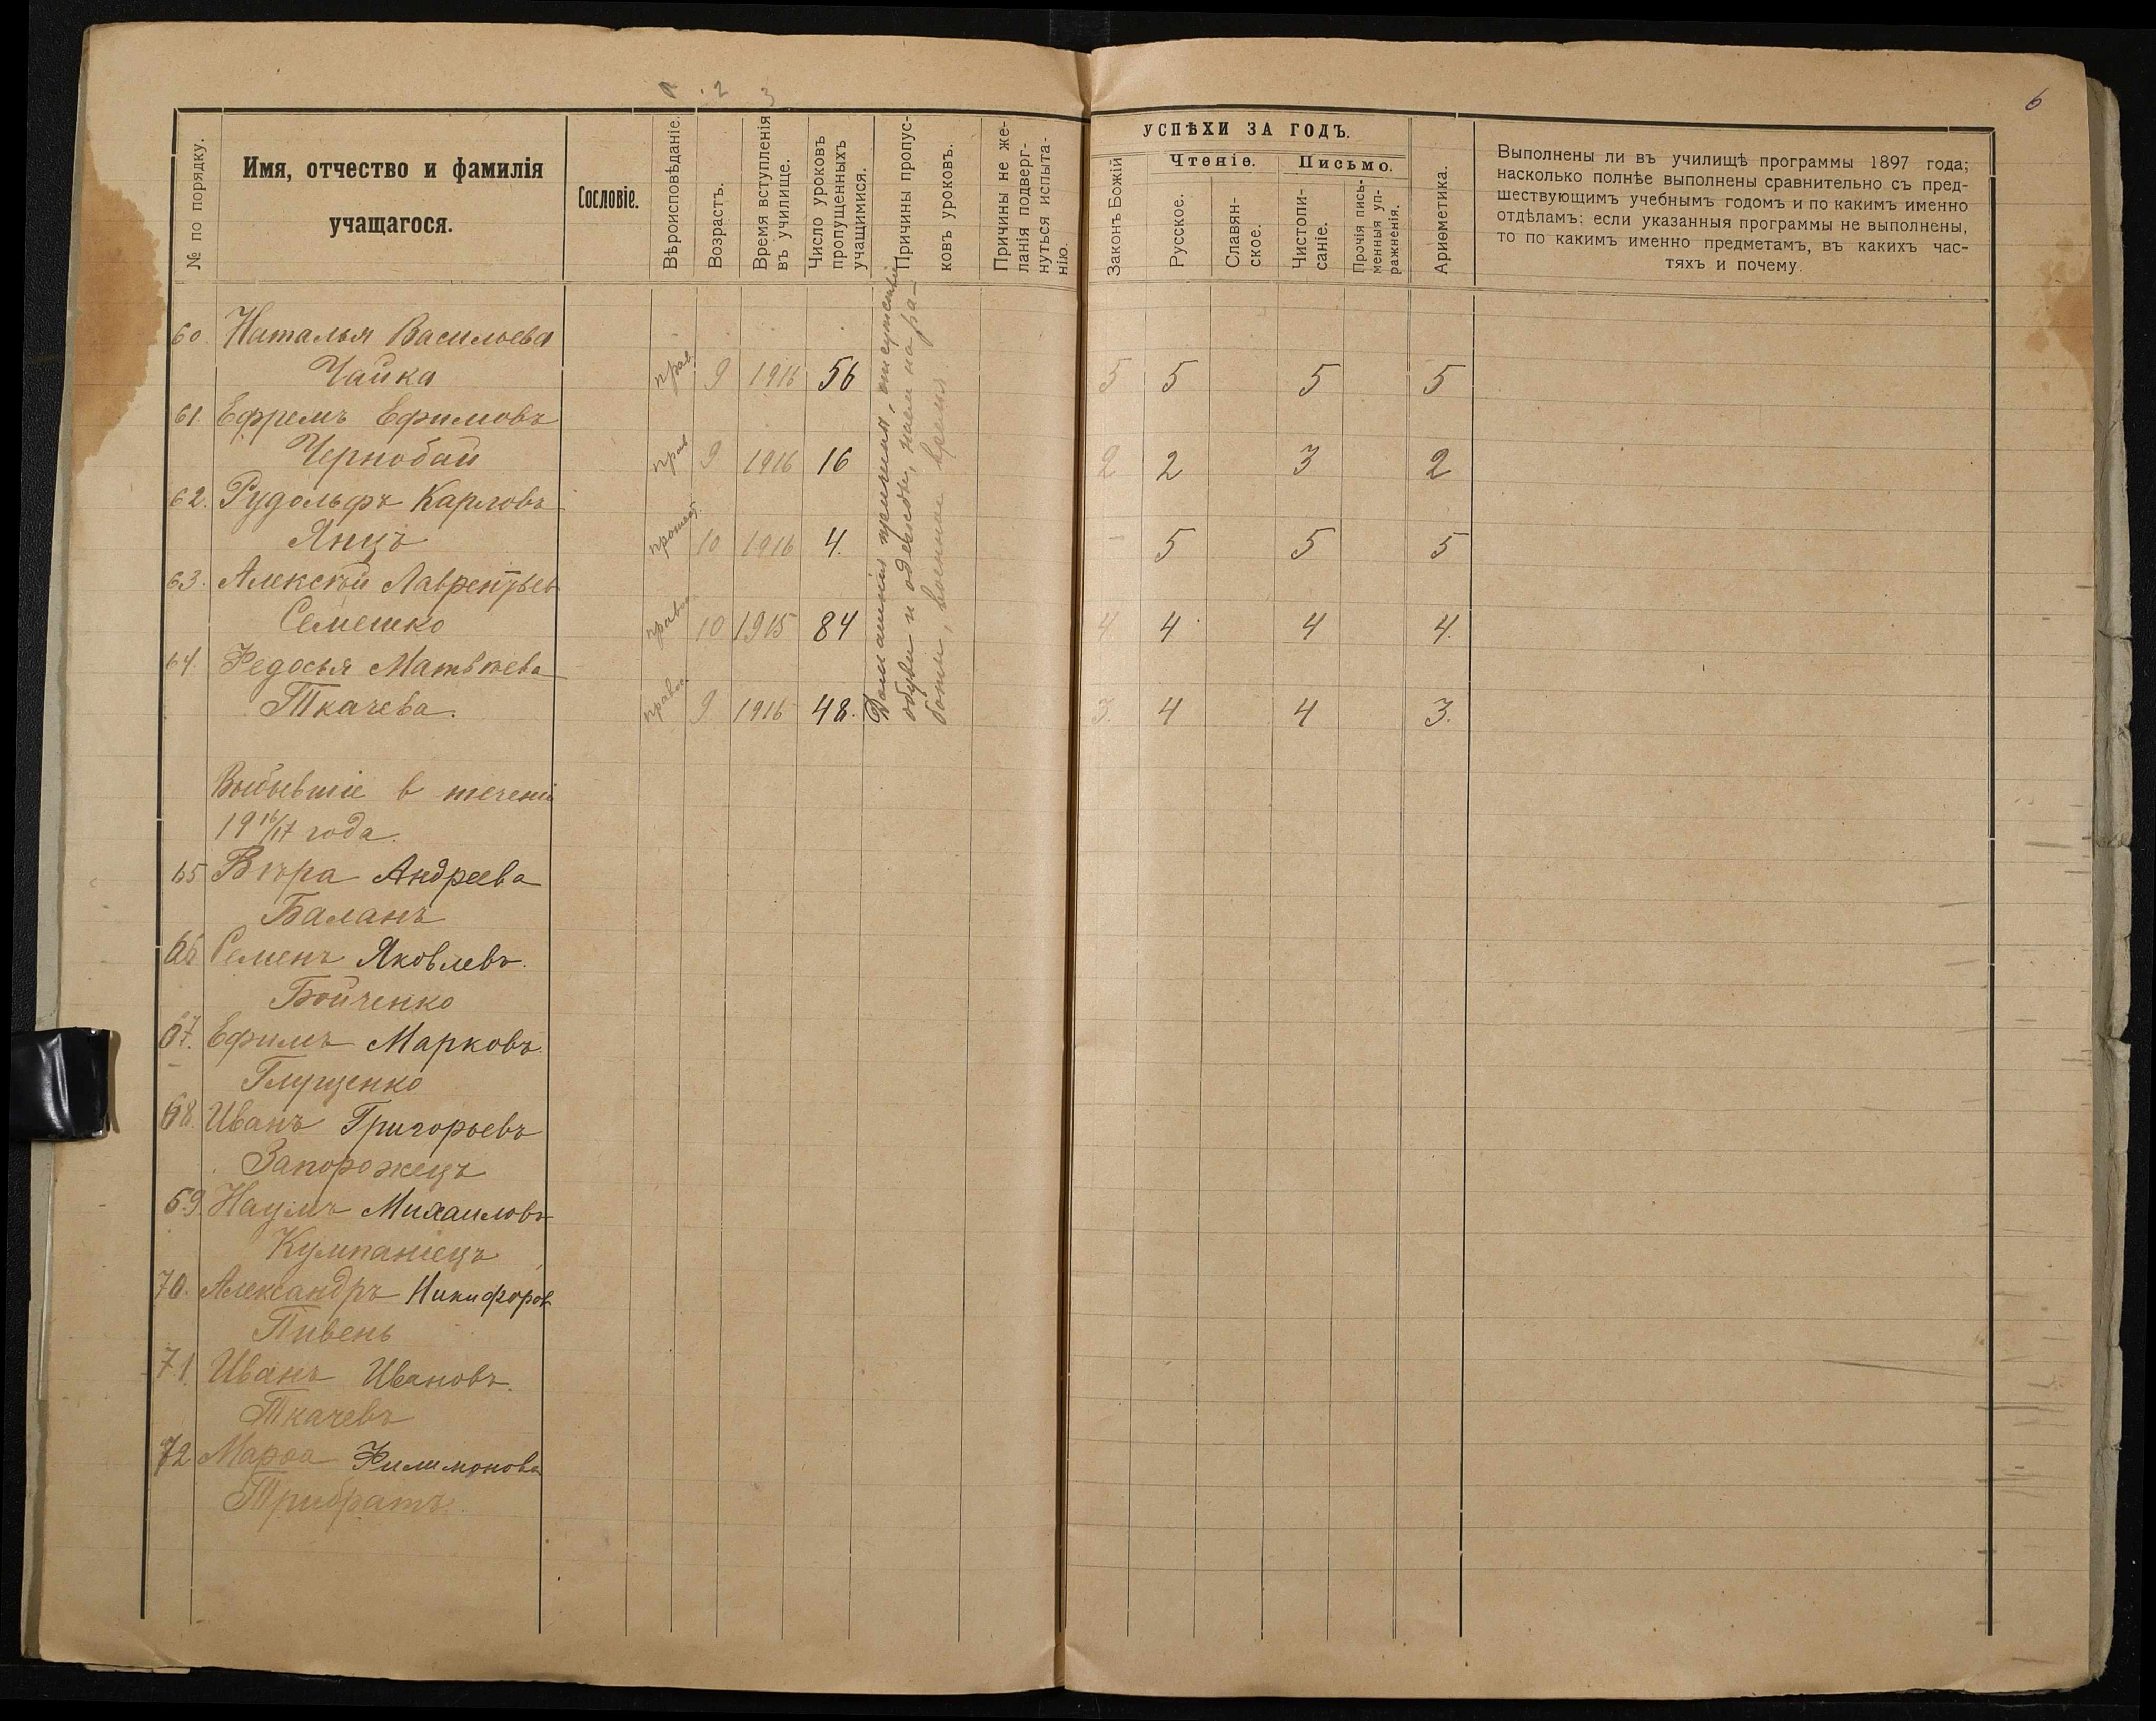 1 2 3
6
№ по порядку.
Имя, отчество и фамилія
учащагося.
Сословіе.
Вѣроисповѣданіе.
Возрастъ.
Время вступленія
въ училище.
Число уроковъ
пропущенныхъ
учащимися.
Причины пропус-
ковъ уроковъ.
Причины не же-
ланія подверг-
нуться испыта-
нію.
УСПѢХИ ЗА ГОДЪ.
Законъ Божій
Чтеніе.
Русское.
Славян-
ское.
Письмо.
Чистопи-
саніе.
Прочія пись-
менныя уп-
ражненія.
Ариѳметика.
Выполнены ли въ училищѣ программы 1897 года;
насколько полнѣе выполнены сравнительно съ пред-
шествующимъ учебнымъ годомъ и по какимъ именно
отдѣламъ; если указанныя программы не выполнены,
то по какимъ именно предметамъ, въ какихъ час-
тяхъ и почему.
60. Наталья Васильева
Чайка прав. 9 1916 56 5 5 5 5
61. Ефремъ Ефимовъ
Чернобай прав 9 1916 16 2 2 3 2
62. Рудольфъ Карловъ
Янцъ протест. 10 1916 4. - 5 5 5
63. Алексѣй Лаврентьев
Семешко правос 10 1915 84 4 4 4 4.
64. Федосья Матвѣева
Ткачева. правос. 9 1916 48. 3. 4 4 3.
Домашнія причины, отсутствіе
обуви и одежды, наем на ра-
боты, военное время
Выбывшіе в теченіи
19 16/17 года.
65 Вѣра Андреева
Баланъ
66 Семенъ Яковлевъ.
Бойченко
67. Ефимъ Марковъ
Глущенко
68. Иванъ Григорьевъ
Запорожецъ
69. Наумъ Михаиловъ
Кумпаніецъ
70. Александръ Никифоров
Пивень
71. Иванъ Ивановъ.
Ткачевъ
72 Марѳа Филимонова
Трибратъ.